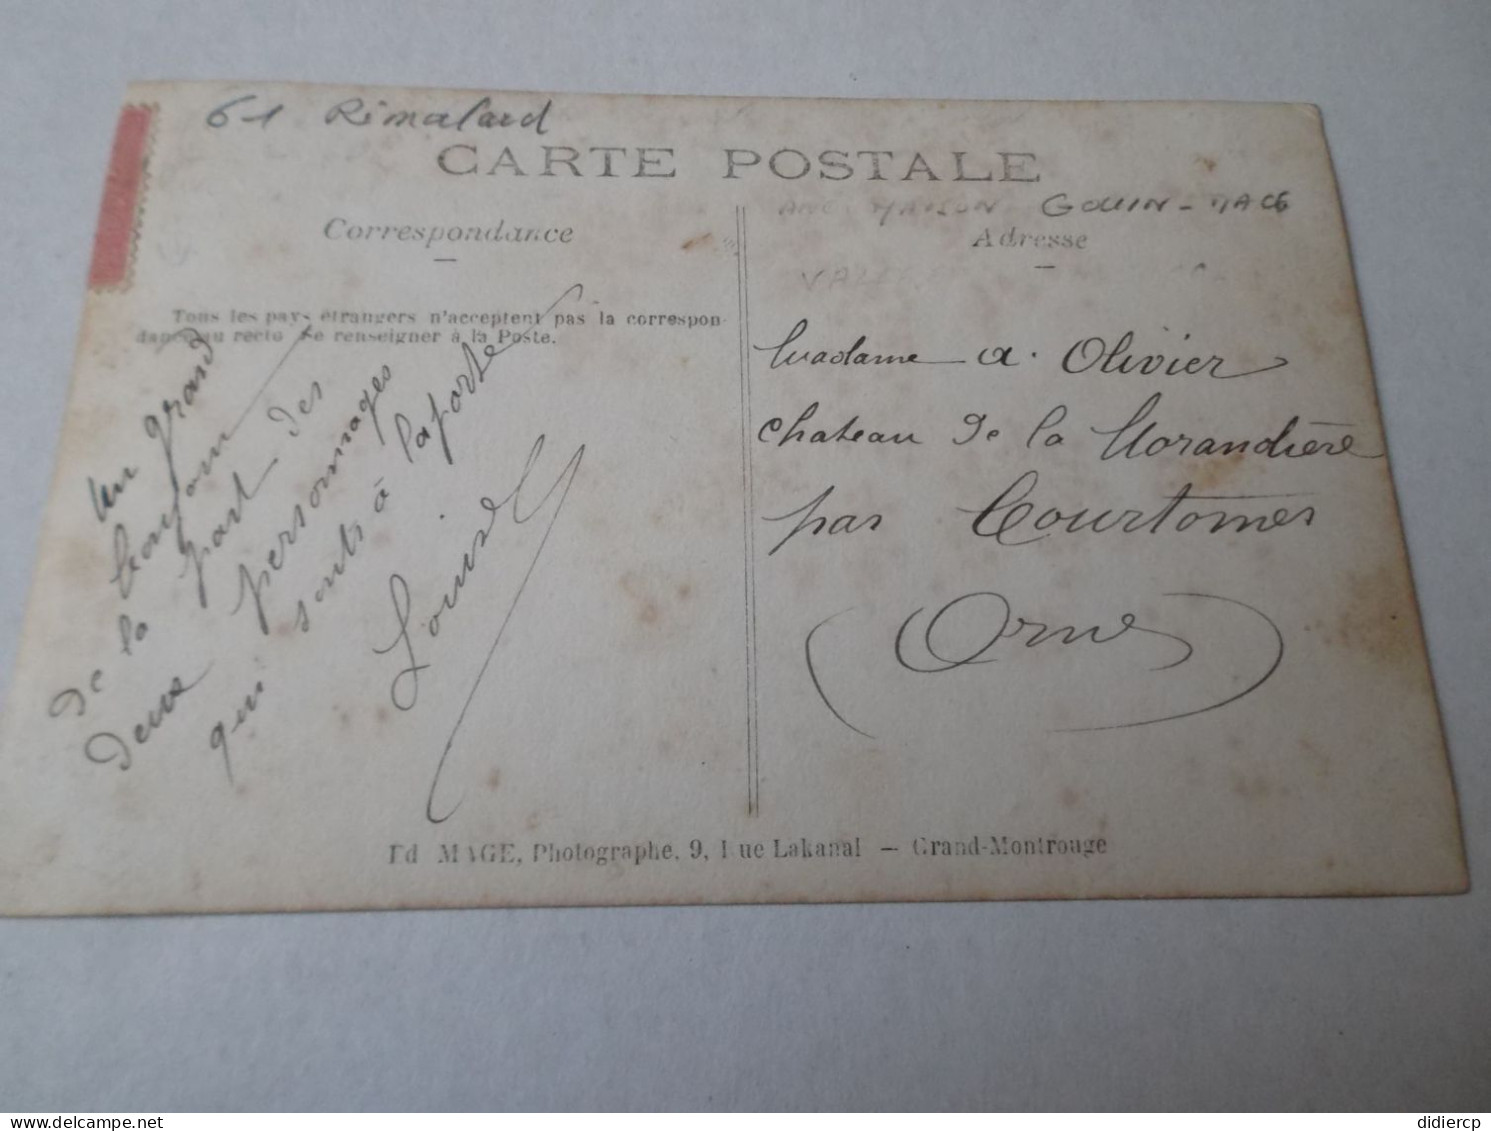 61 Rémalard
CARTE POSTALE
ANC MAISON GOUIN - MACÉ
Correspondance
Adresse
Tous les pays étrangers n'acceptent pas la correspon-
dance au recto. Se renseigner à la Poste.
un grand
bonjour
de la part des
deux personnages
qui sonts à laporte
Louise
Madame A. Olivier
chateau de la Morandière
par Courtomer
(Orne)
Ed MAGE, Photographe, 9, Rue Lakanal — Grand-Montrouge
didiercp